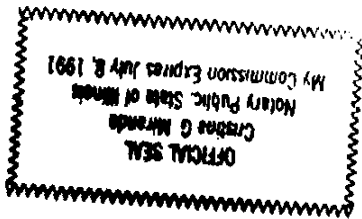 OFFICIAL SEAL
Cristina G Miranda
Notary Public, State of Illinois
My Commission Expires July 8, 1991